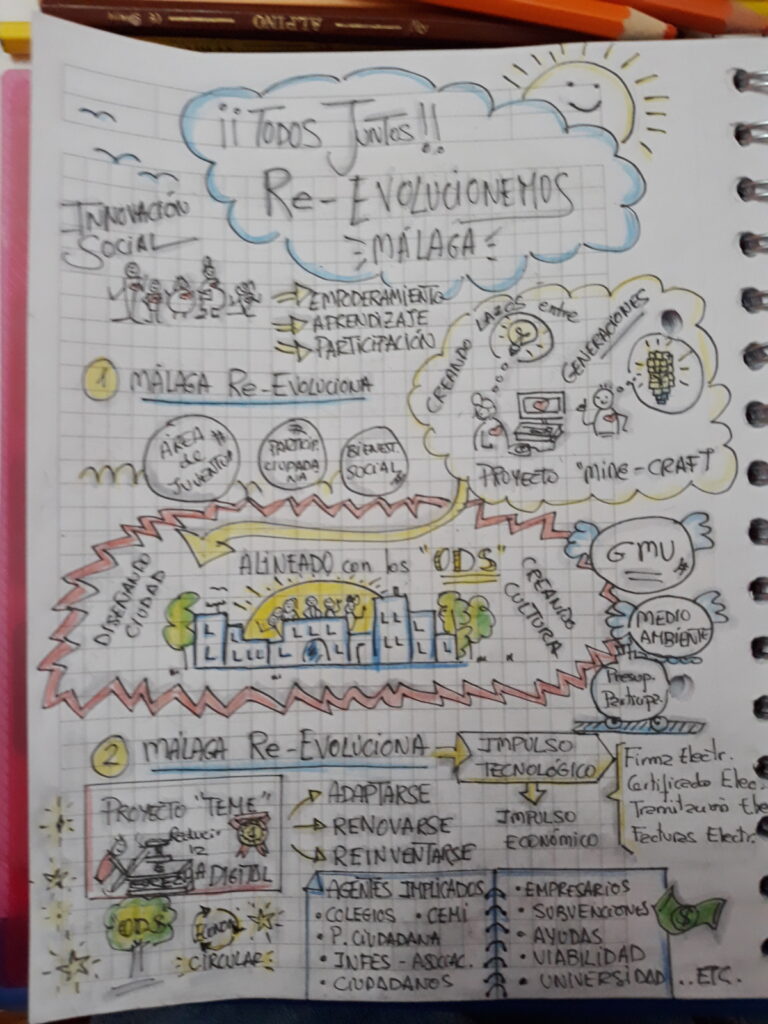 ALPINO
¡¡TODOS JUNTOS!!
Re-EVOLUCIONEMOS
MÁLAGA
INNOVACIÓN
SOCIAL
EMPODERAMIENTO
APRENDIZAJE
PARTICIPACIÓN
CREANDO LAZOS entre
GENERACIONES
PROYECTO "MINE-CRAFT
1 MÁLAGA Re-EVOLUCIONA
ÁREA
de
JUVENTUD
PARTICIP.
CIUDADA
NIA
BIENEST.
SOCIAL
DISEÑANDO
CIUDAD
ALINEADO con los "ODS"
CREANDO
CULTURA
GMU
MEDIO
AMBIENTE
Presup.
Particip.
2 MÁLAGA Re-EVOLUCIONA
IMPULSO
TECNOLÓGICO
IMPULSO
ECONÓMICO
Firma Electr.
Certificado Elec.
Tramitación Ele
Facturas Electr.
PROYECTO "TEME"
reducir
la
DIGITAL
ADAPTARSE
RENOVARSE
REINVENTARSE
ODS
CIRCULAR
AGENTES IMPLICADOS
• COLEGIOS • CEMI
• P. CIUDADANA
• INFES - ASOCIAC.
• CIUDADANOS
• EMPRESARIOS
• SUBVENCIONES
• AYUDAS
• VIABILIDAD
• UNIVERSIDAD
...ETC.